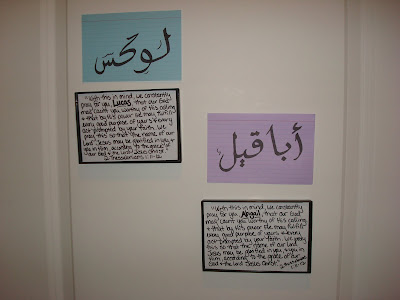 لوكس
"With this in mind, we constantly
pray for you, Lucas, that our God
may count you worthy of His calling
& that by His power He may fulfill
every good purpose of yours & every
act prompted by your faith. We
pray this so that the name of our
Lord Jesus may be glorified in you &
you in Him, according to the grace of
our God & the Lord Jesus Christ."
2 Thessalonians 1:11-12
أباقيل
"With this in mind, we constantly
pray for you, Abigail, that our God
may count you worthy of His calling
& that by His power He may fulfill
every good purpose of yours & every
act prompted by your faith. We pray
this so that the name of our Lord
Jesus may be glorified in you, & you in
Him, according to the grace of our
God & the Lord Jesus Christ."